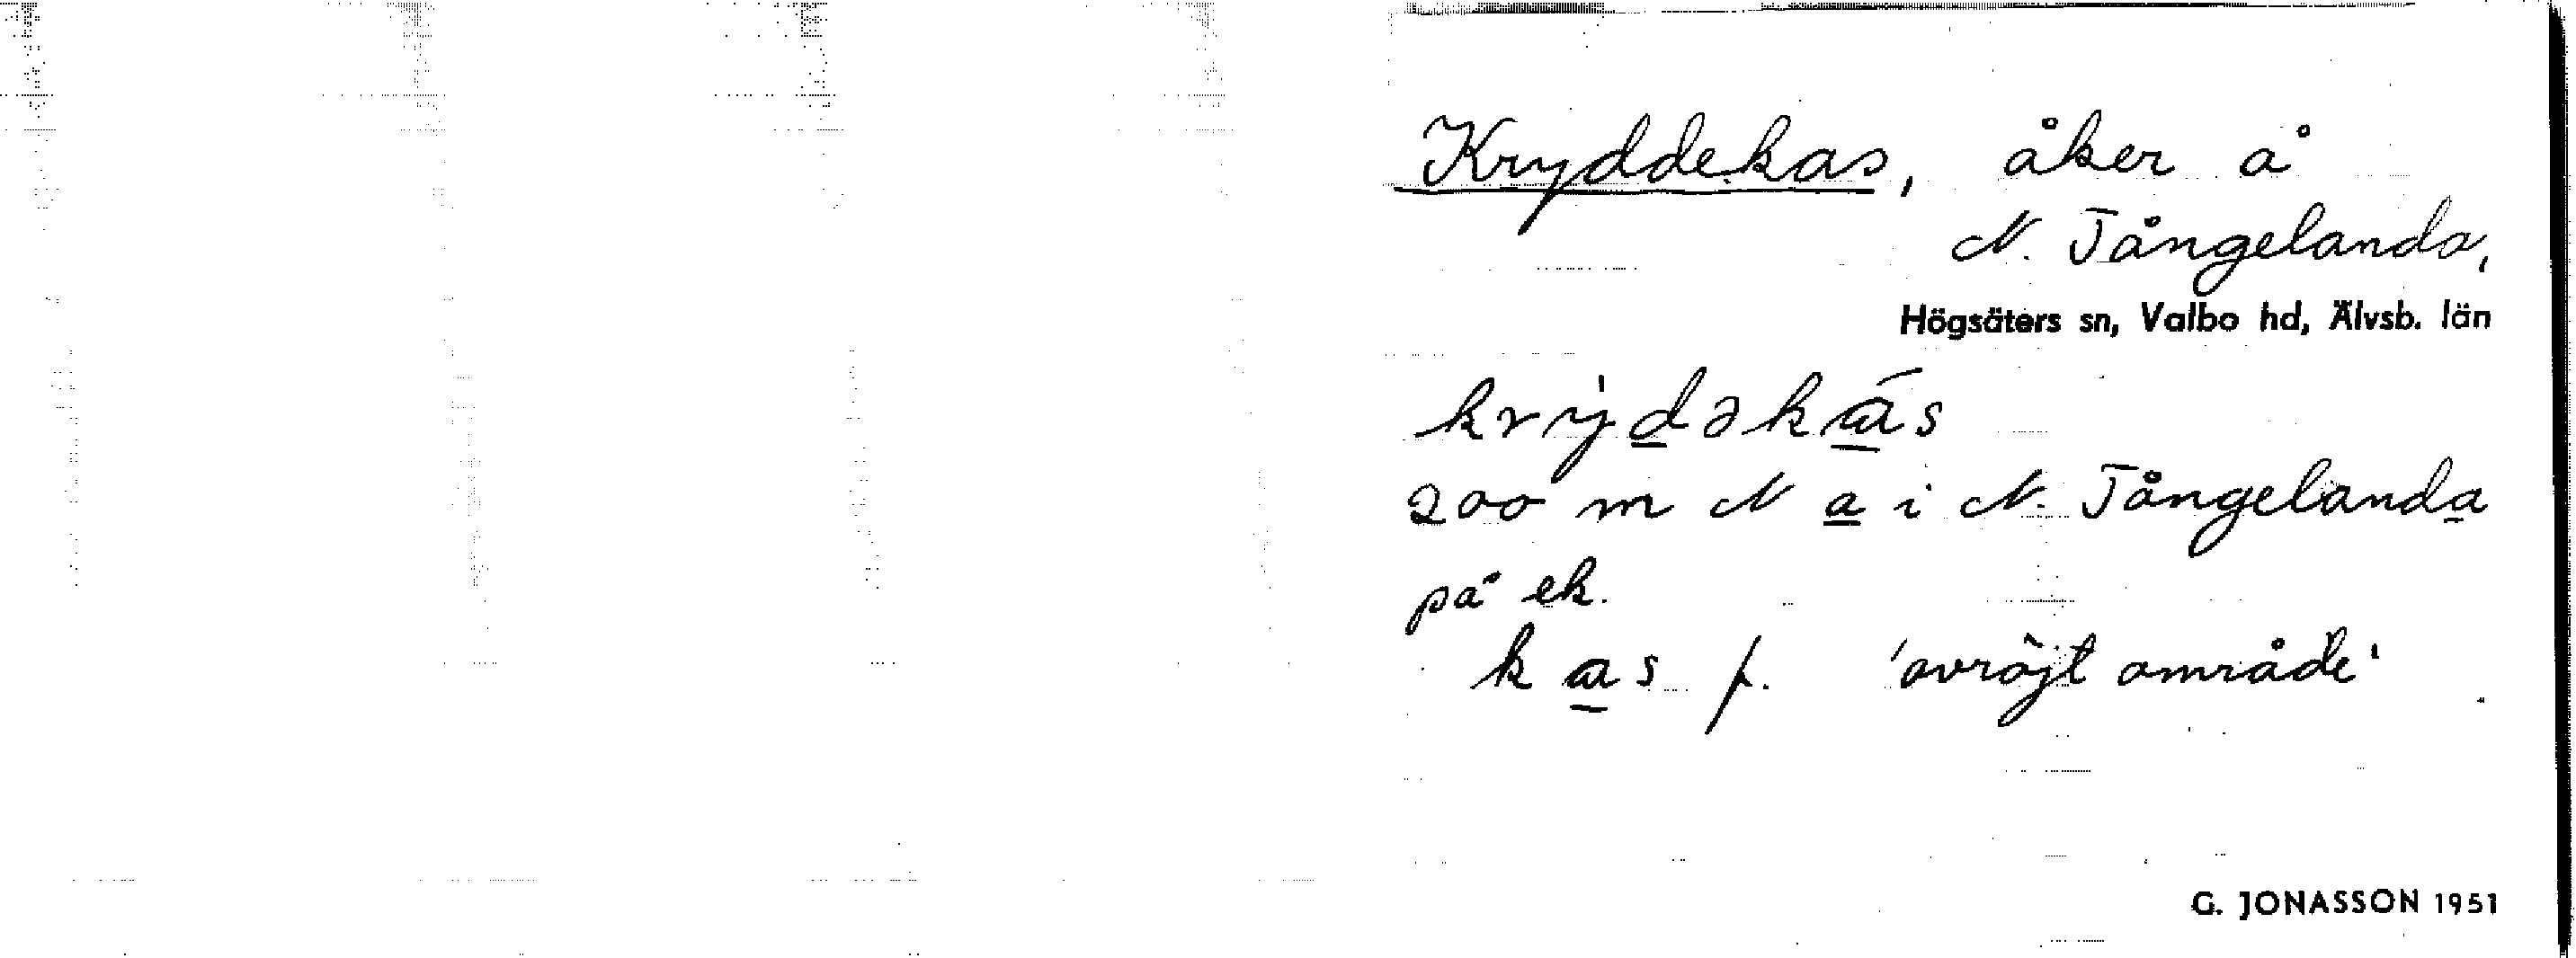 Kryddekas, åker å
N. Tångelanda,
Högsäters sn, Valbo hd, Älvsb. län
krýdəkás
200 m N a i N. Tångelanda
på ek.
kas f. 'avröjt område'
G. JONASSON 1951